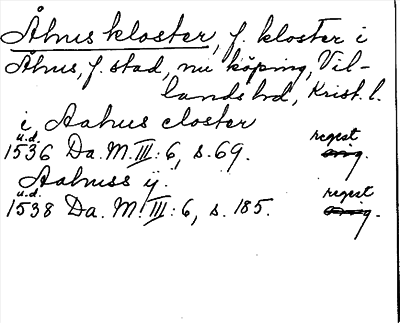 Åhus kloster, f. kloster i
Åhus, f. stad, nu köping, Vil-
lands hd, Krist. l.
i Aahus closter
u.d. regest
1536 Da. M. III: 6, s. 69. orig.
Aahuss ij.
u.d. regest
1538 Da. M. III: 6, s. 185. orig.